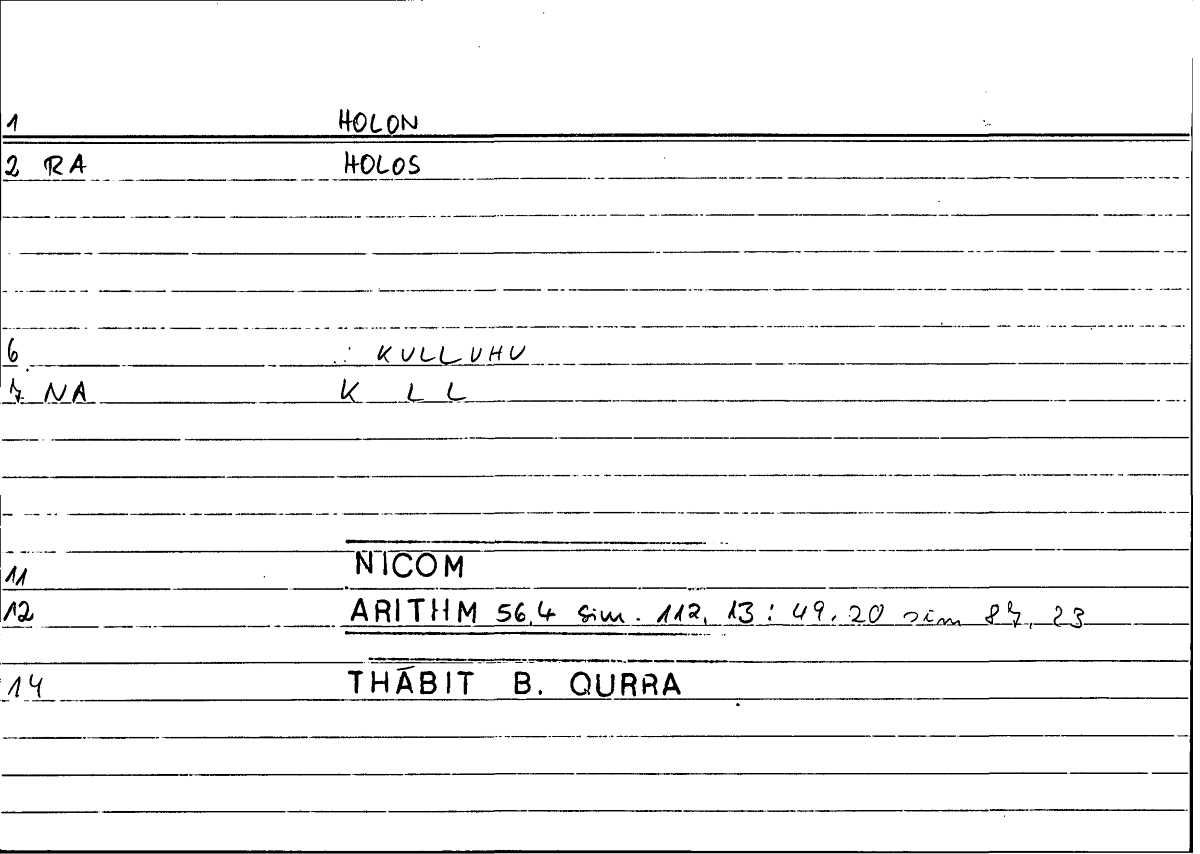 1 HOLON
2 RA HOLOS
6 KULLUHU
7 NA K L L
11 NICOM
12 ARITHM 56,4 sim. 112, 13 : 49, 20 sim 87, 23
14 THĀBIT B. QURRA